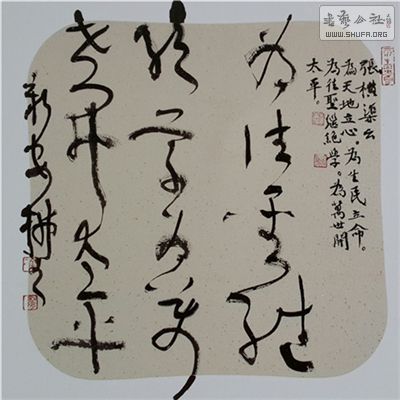 書藝公社
WWW.SHUFA.ORG
張橫渠云
為天地立心。為生民立命。
為往聖繼絕學。為萬世開
太平。
為往聖繼
絕學為萬
世開太平
新安